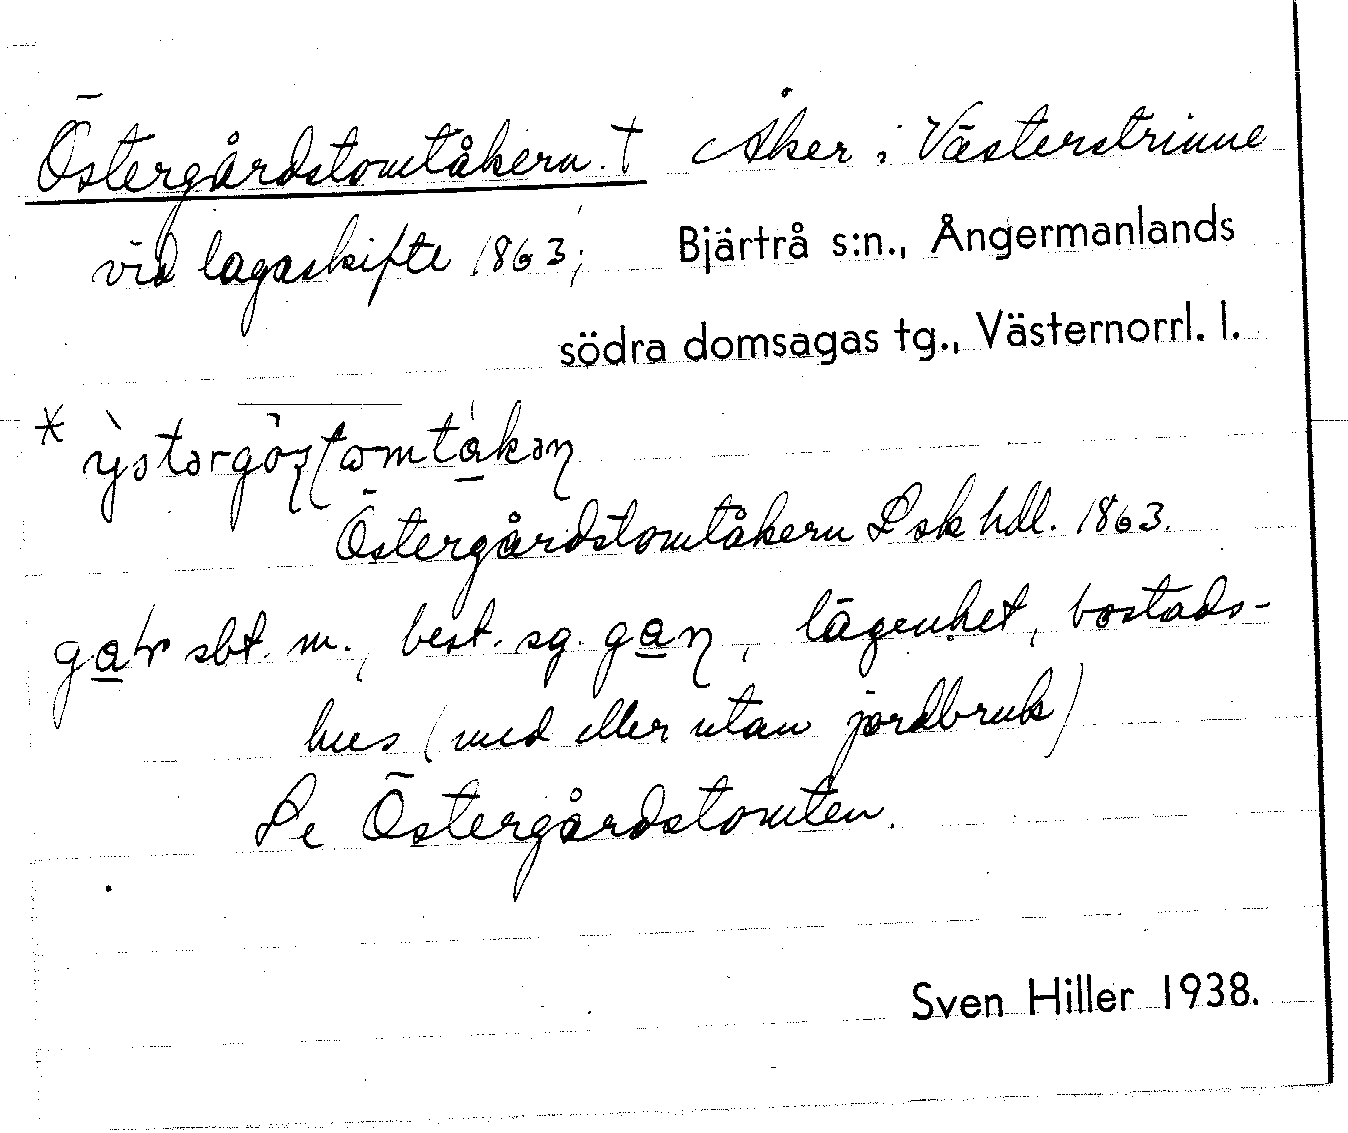 Östergårdstomtåkern. † Åker i Västerstrinne
vid lagaskifte 1863; Bjärtrå s:n., Ångermanlands
södra domsagas tg., Västernorrl. l.
*
Östergårdstomtåkern Lsk hdl. 1863.
sbt. m., best. sg. , lägenhet, bostads-
hus (med eller utan jordbruk)
Se Östergårdstomten.
Sven Hiller 1938.